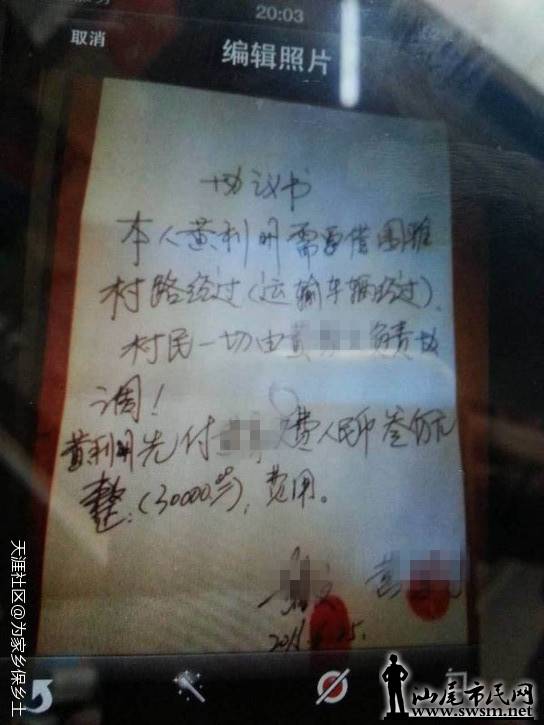 20:03
取消
编辑照片
协议书
本人黄利明需要借围雅
村路经过(运输车辆经过).
村民一切由黄 负责协
调!
黄利明先付 费人民币叁万元
整:(30000岁),费用。
天涯社区@为家乡保乡土
汕尾市民网
www.swsm.net